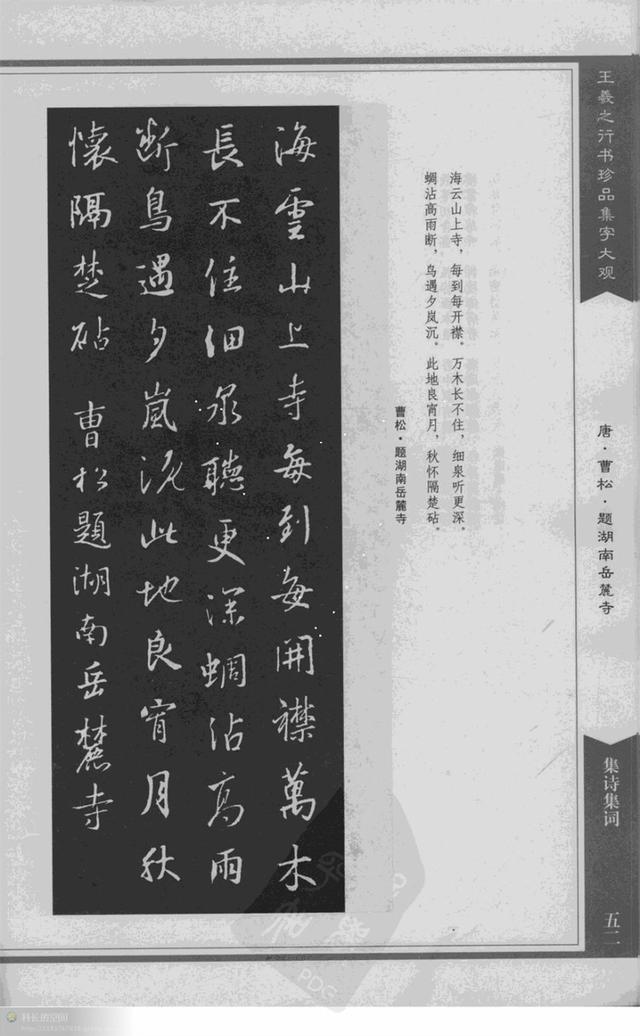 王羲之行书珍品集字大观
唐·曹松·题湖南岳麓寺
集诗集词
五二
海云山上寺，每到每开襟。万木长不住，细泉听更深。
蜩沾高雨断，鸟遇夕岚沉。此地良宵月，秋怀隔楚砧。
曹松·题湖南岳麓寺
海雲山上寺每到每開襟萬木
長不住細泉聽更深蜩沾高雨
断鳥遇夕嵐沉此地良宵月秋
懷隔楚砧 曹松題湖南岳麓寺
PDG
科长的空间